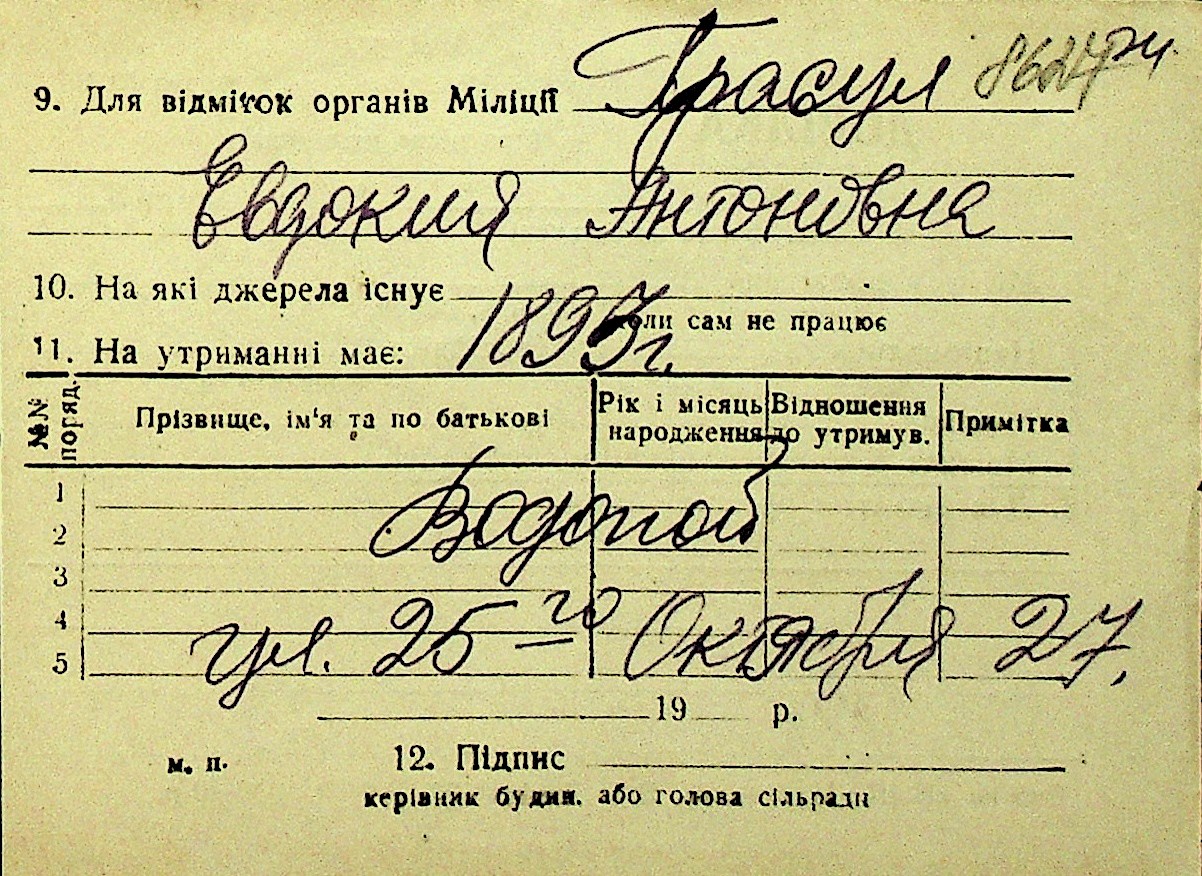 9. Для відміток органів Міліції Грасул
Евдокия Антоновна
10. На які джерела існує
коли сам не працює
11. На утриманні має: 1897 г.
№№ поряд.
Прізвище, ім‘я та по батькові
Рік і місяць народження
Відношення до утримув.
Примітка
1
2 Водопой
3
4
5 ул. 25-го Октября 27,
19 р.
м. п. 12. Підпис
керівник будин. або голова сільради